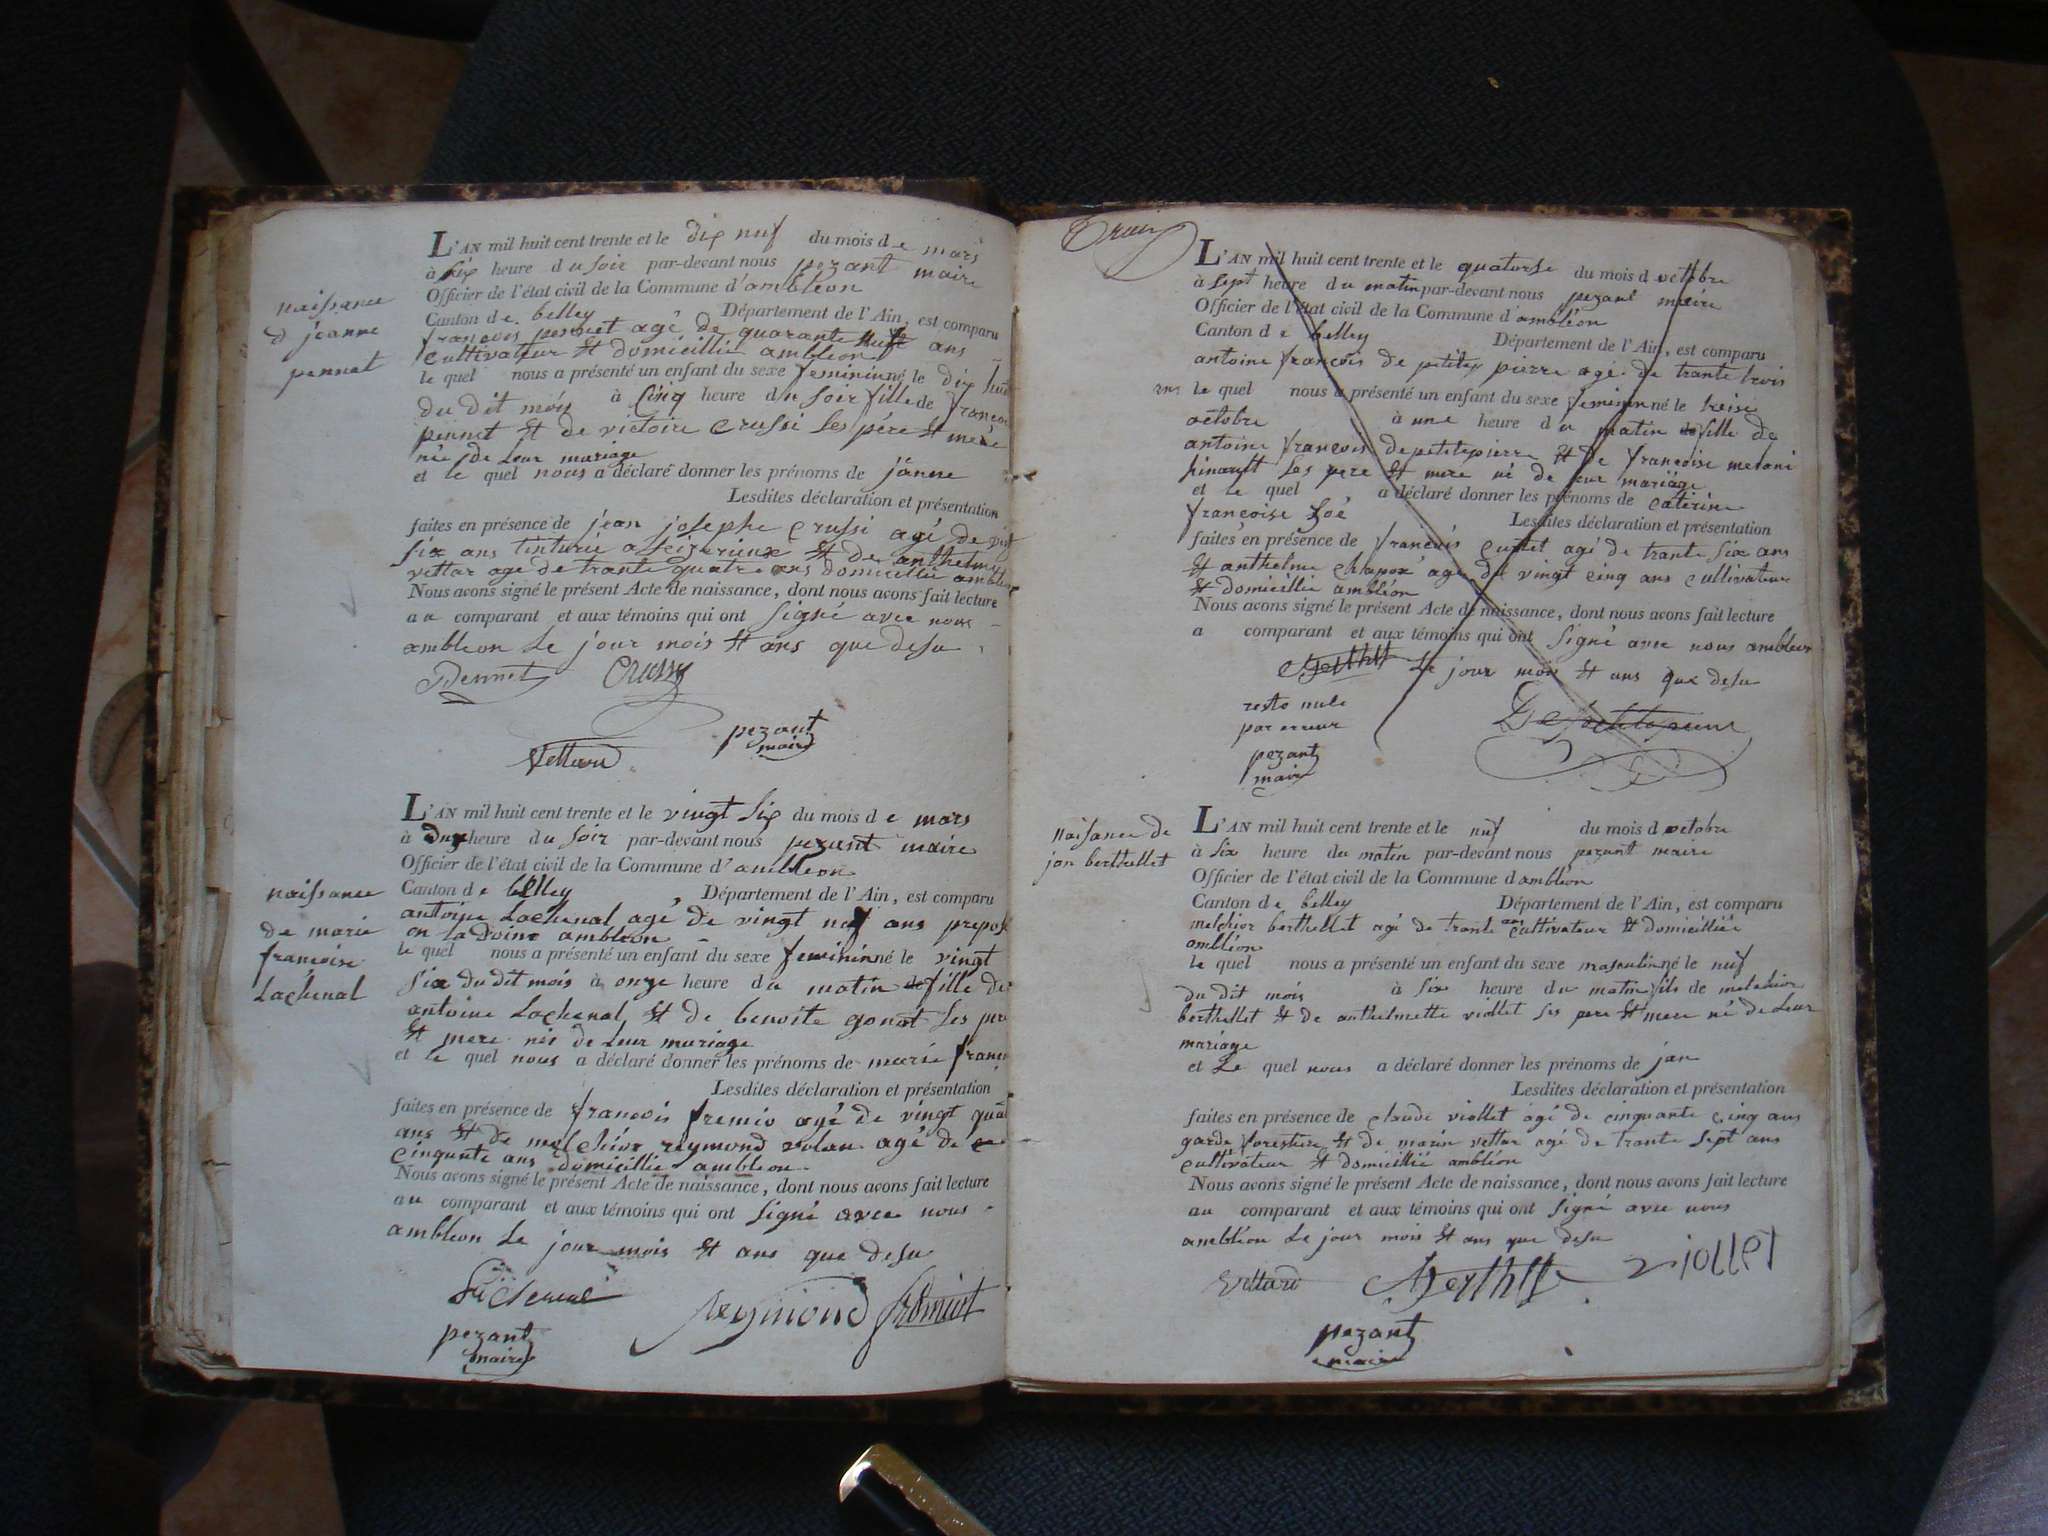 L'AN mil huit cent trente et le dix neuf du mois de mars
à six heure du soir par-devant nous pezant maire
Officier de l'état civil de la Commune d'ambléon
naissance
d jeanne
pennet
Canton de belley Département de l'Ain, est comparu
françois pennet agé de quarante ans
cultivateur et domicillié ambléon
le quel nous a présenté un enfant du sexe feminin né le dix huit
du dit mois à cinq heure du soir fille de françois
pennet et de victoire crussi ses père et mere
née de leur mariage
et le quel nous a déclaré donner les prénoms de jânne
Lesdites déclaration et présentation
faites en présence de jean josephe crussi agé de
six ans a et de anthelme
vettar age de trante quatre ans domicillié ambléon
Nous avons signé le présent Acte de naissance, dont nous avons fait lecture
au comparant et aux témoins qui ont signé avec nous
ambleon le jour mois et ans que desu
Pennet Crussy
pezant
maire
Vettard
L'AN mil huit cent trente et le vingt six du mois de mars
à heure du soir par-devant nous pezant maire
Officier de l'état civil de la Commune d'ambleon
naissance
de marie
francoise
Lachenal
Canton de belley Département de l'Ain, est comparu
antoine Lachenal agé de vingt nef ans prepose
en ladoine ambleon
le quel nous a présenté un enfant du sexe feminin né le vingt
six du dit mois à onze heure du matin fille de
antoine Lachenal et de benoite gonet ses pere
et mere née de leur mariage
et le quel nous a déclaré donner les prénoms de marie
Lesdites déclaration et présentation
faites en présence de françois fremio agé de vingt
ans et de melchior reymond agé de
cinqunte ans domicillié ambleon
Nous avons signé le présent Acte de naissance, dont nous avons fait lecture
au comparant et aux témoins qui ont signé avec nous
ambleon le jour mois et ans que desu
Reymond
pezant
maire
L'AN mil huit cent trente et le quatorse du mois d octobre
à sept heure du matin par-devant nous pezant maire
Officier de l'état civil de la Commune d ambléon
Canton de belley Département de l'Ain, est comparu
antoine françois de petitep pierre age de trante trois
ans le quel nous a présenté un enfant du sexe feminin né le treise
octobre à une heure du matin fille de
antoine françois depetitepierre et de françoise
ses pere et mere né de leur mariage
et le quel a déclaré donner les prénoms de caterine
françoise Zoé Lesdites déclaration et présentation
faites en présence de françois agé de trante six ans
et anthelme age de vingt cinq ans cultivateur
et domicillie ambléon
Nous avons signé le présent Acte de naissance, dont nous avons fait lecture
a comparant et aux témoins qui ont signé avec nous ambleon
le jour mois et ans que desu
reste nule
par erreur
pezant
maire
Naisance de
jan berthellet
L'AN mil huit cent trente et le nuf du mois d octobre
à six heure du matin par-devant nous pezant maire
Officier de l'état civil de la Commune d ambléon
Canton de belley Département de l'Ain, est comparu
melchior berthellet agé de trante ans cultivateur et domicillié
ambléon
le quel nous a présenté un enfant du sexe masculin né le nuf
du dit mois à six heure du matin fils de melchior
berthellet et de anthelmette viollet ses pere et mere né de leur
mariage
et le quel nous a déclaré donner les prénoms de jan
Lesdites déclaration et présentation
faites en présence de claude viollet agé de cinquante cinq ans
garde forestiere et de marin vettar agé de trante sept ans
cultivateur et domicillié ambléon
Nous avons signé le présent Acte de naissance, dont nous avons fait lecture
au comparant et aux témoins qui ont signé avec nous
ambléon le jour mois et ans que desu
Vettard viollet
pezant
maire